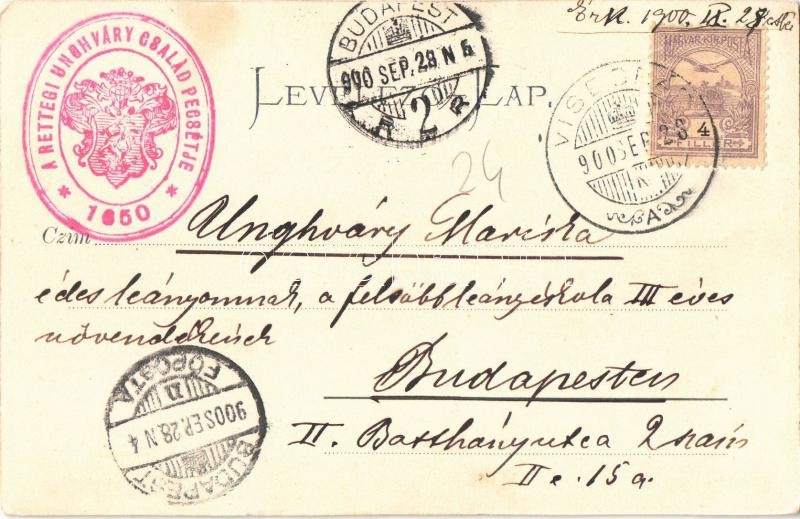 Érk. 1900. IX. 28
BUDAPEST
900 SEP. 28 N 5
2
MAGYAR KIR. POSTA
4
FILLÉR
VISEGRÁD
900 SEP 28
A
A RETTEGI UNGHVÁRY CSALÁD PECSÉTJE
* 1650 *
LEVELEZŐ-LAP.
24
Czim
Unghváry Mariska
édes leányomnak, a felsőbb leányiskola III éves
növendékének
Budapesten
II. Batthány utca 2 szám
II e. 15 a.
BUDAPEST
FŐPOSTA
900 SEP. 28. N 4